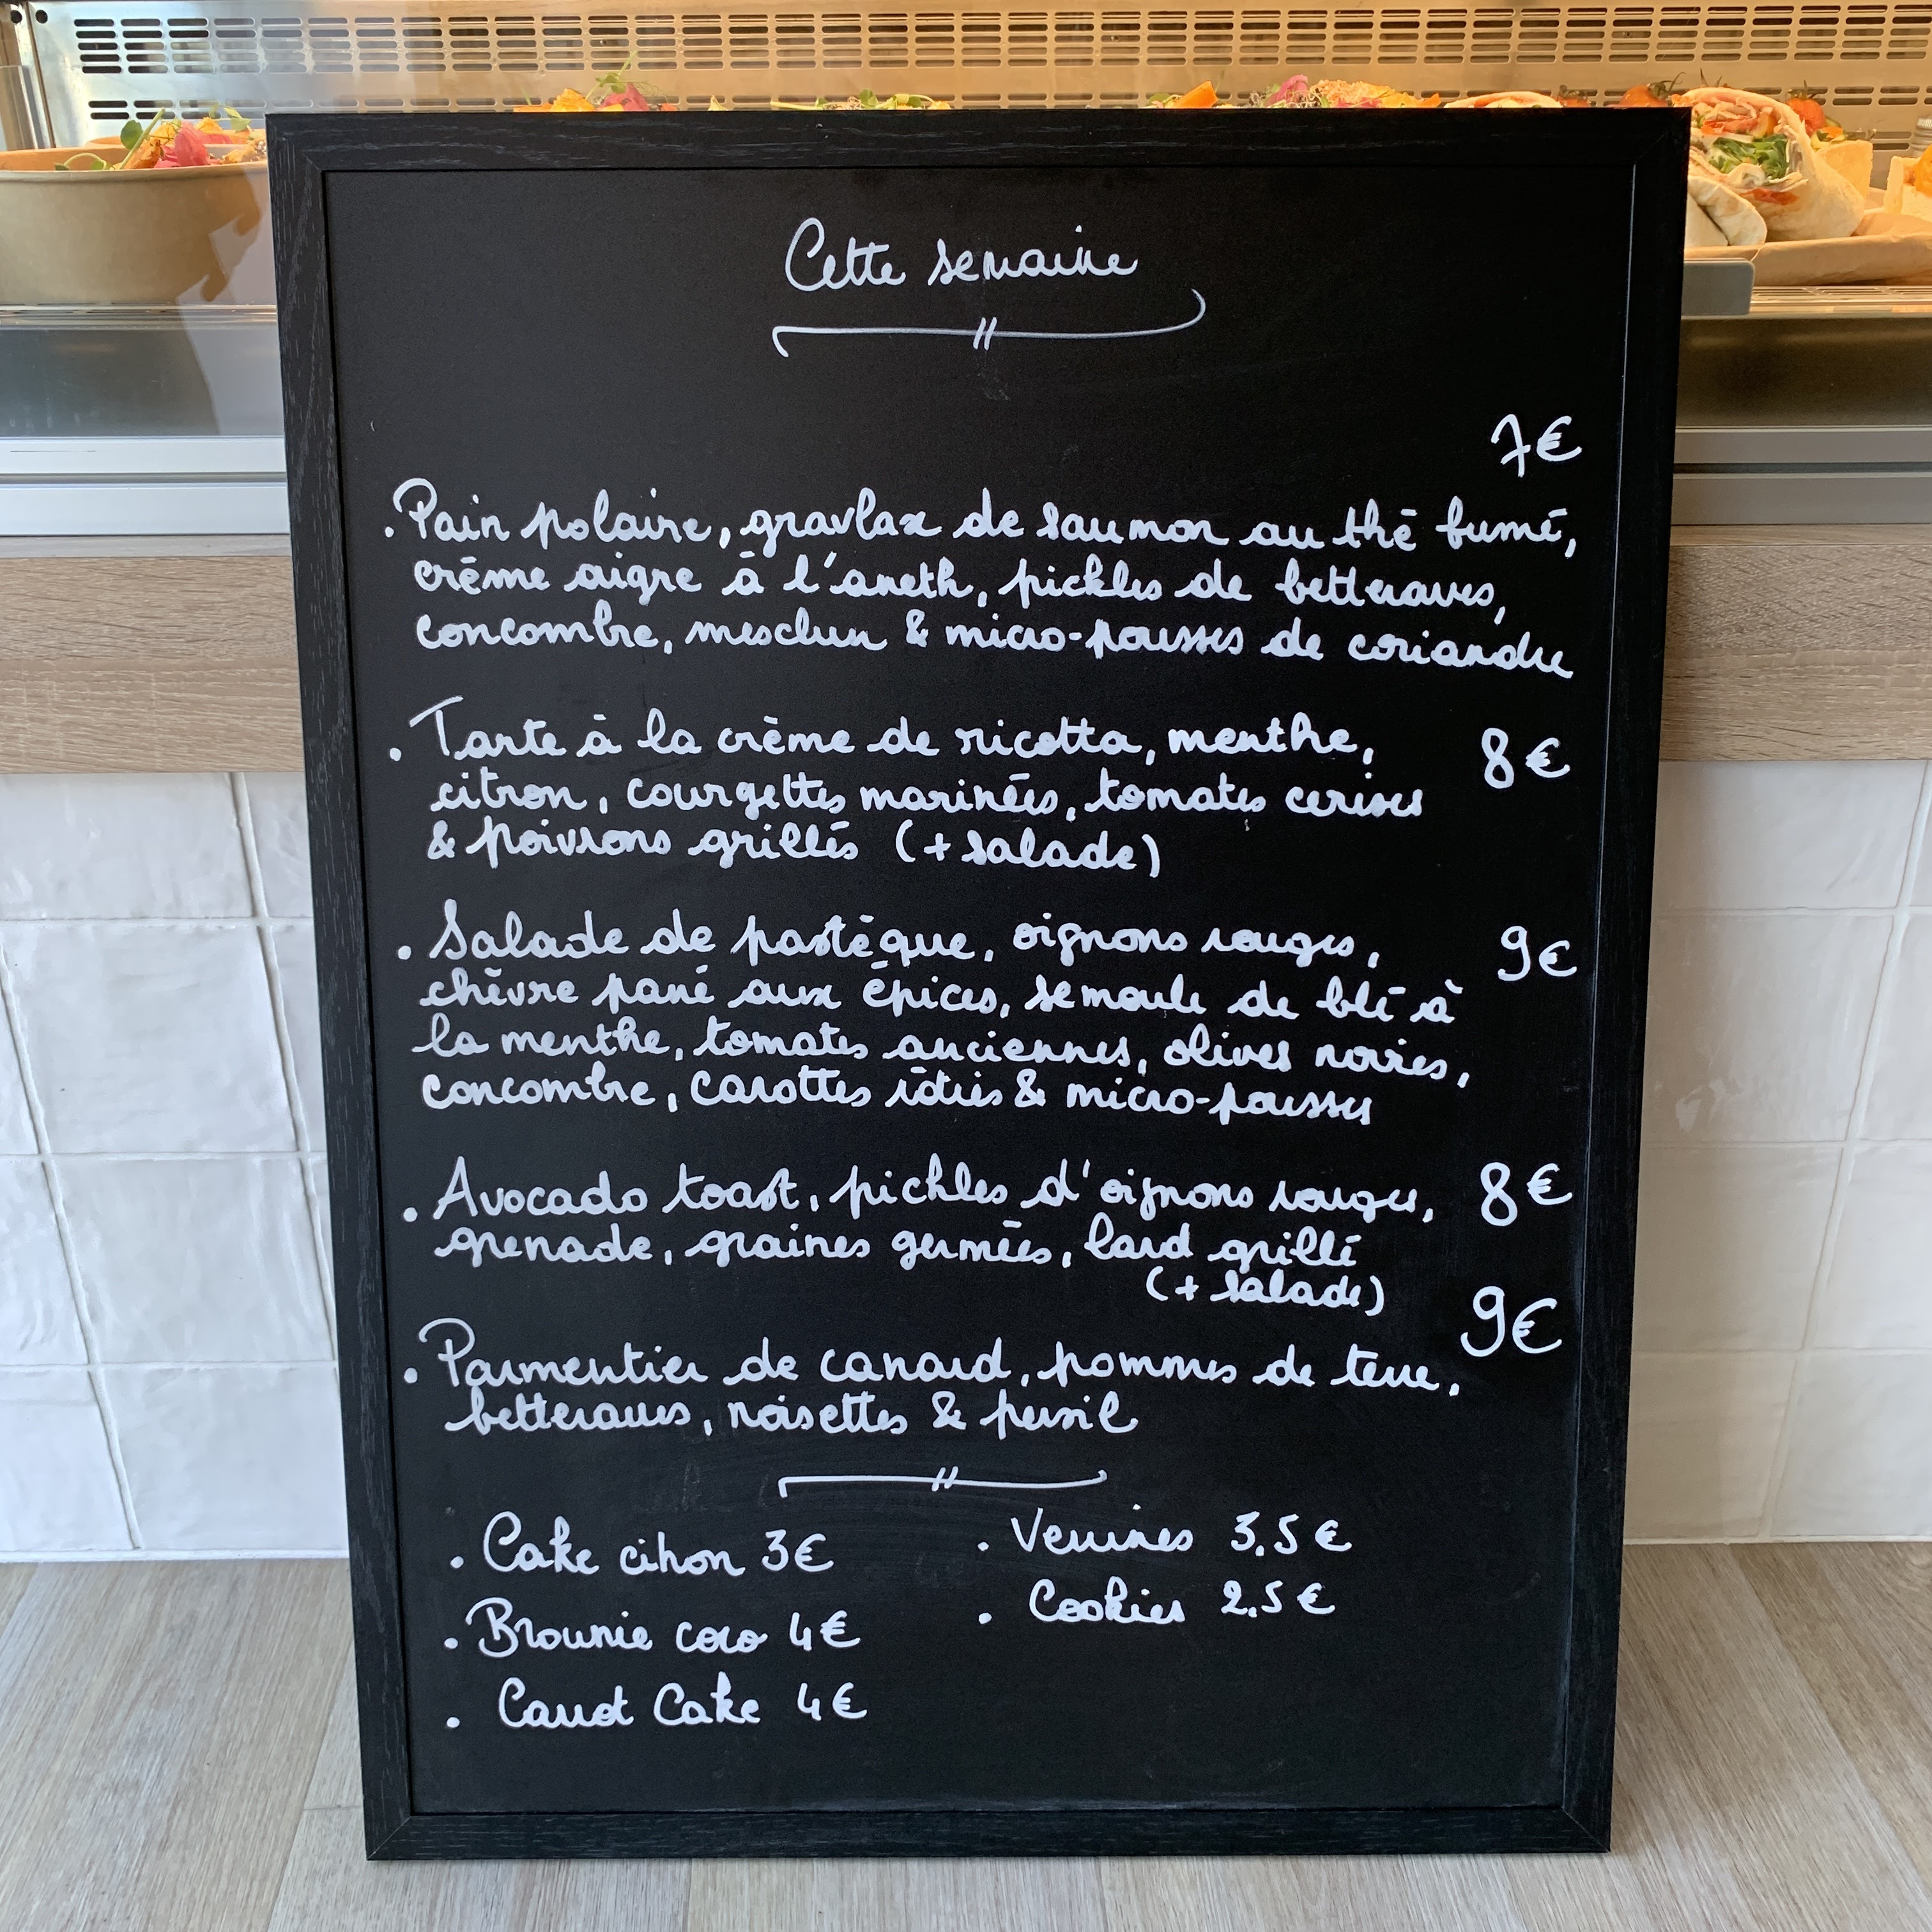 Cette semaine
7€
. Pain polaire, gravlax de saumon au thé fumé,
crème aigre à l'aneth, pickles de betteraves,
concombre, mesclun & micro-pousses de coriandre
. Tarte à la crème de ricotta, menthe, 8€
citron, courgettes marinées, tomates cerises
& poivrons grillés (+ salade)
. Salade de pastèque, oignons rouges, 9€
chèvre pané aux épices, semoule de blé à
la menthe, tomates anciennes, olives noires,
concombre, carottes rôties & micro-pousses
. Avocado toast, pickles d'oignons rouges, 8€
grenade, graines germées, lard grillé
(+ salade)
9€
. Parmentier de canard, pommes de terre,
betteraves, noisettes & persil
. Cake citron 3€
. Brownie coco 4€
. Carrot Cake 4€
. Verrines 3,5€
. Cookies 2,5€